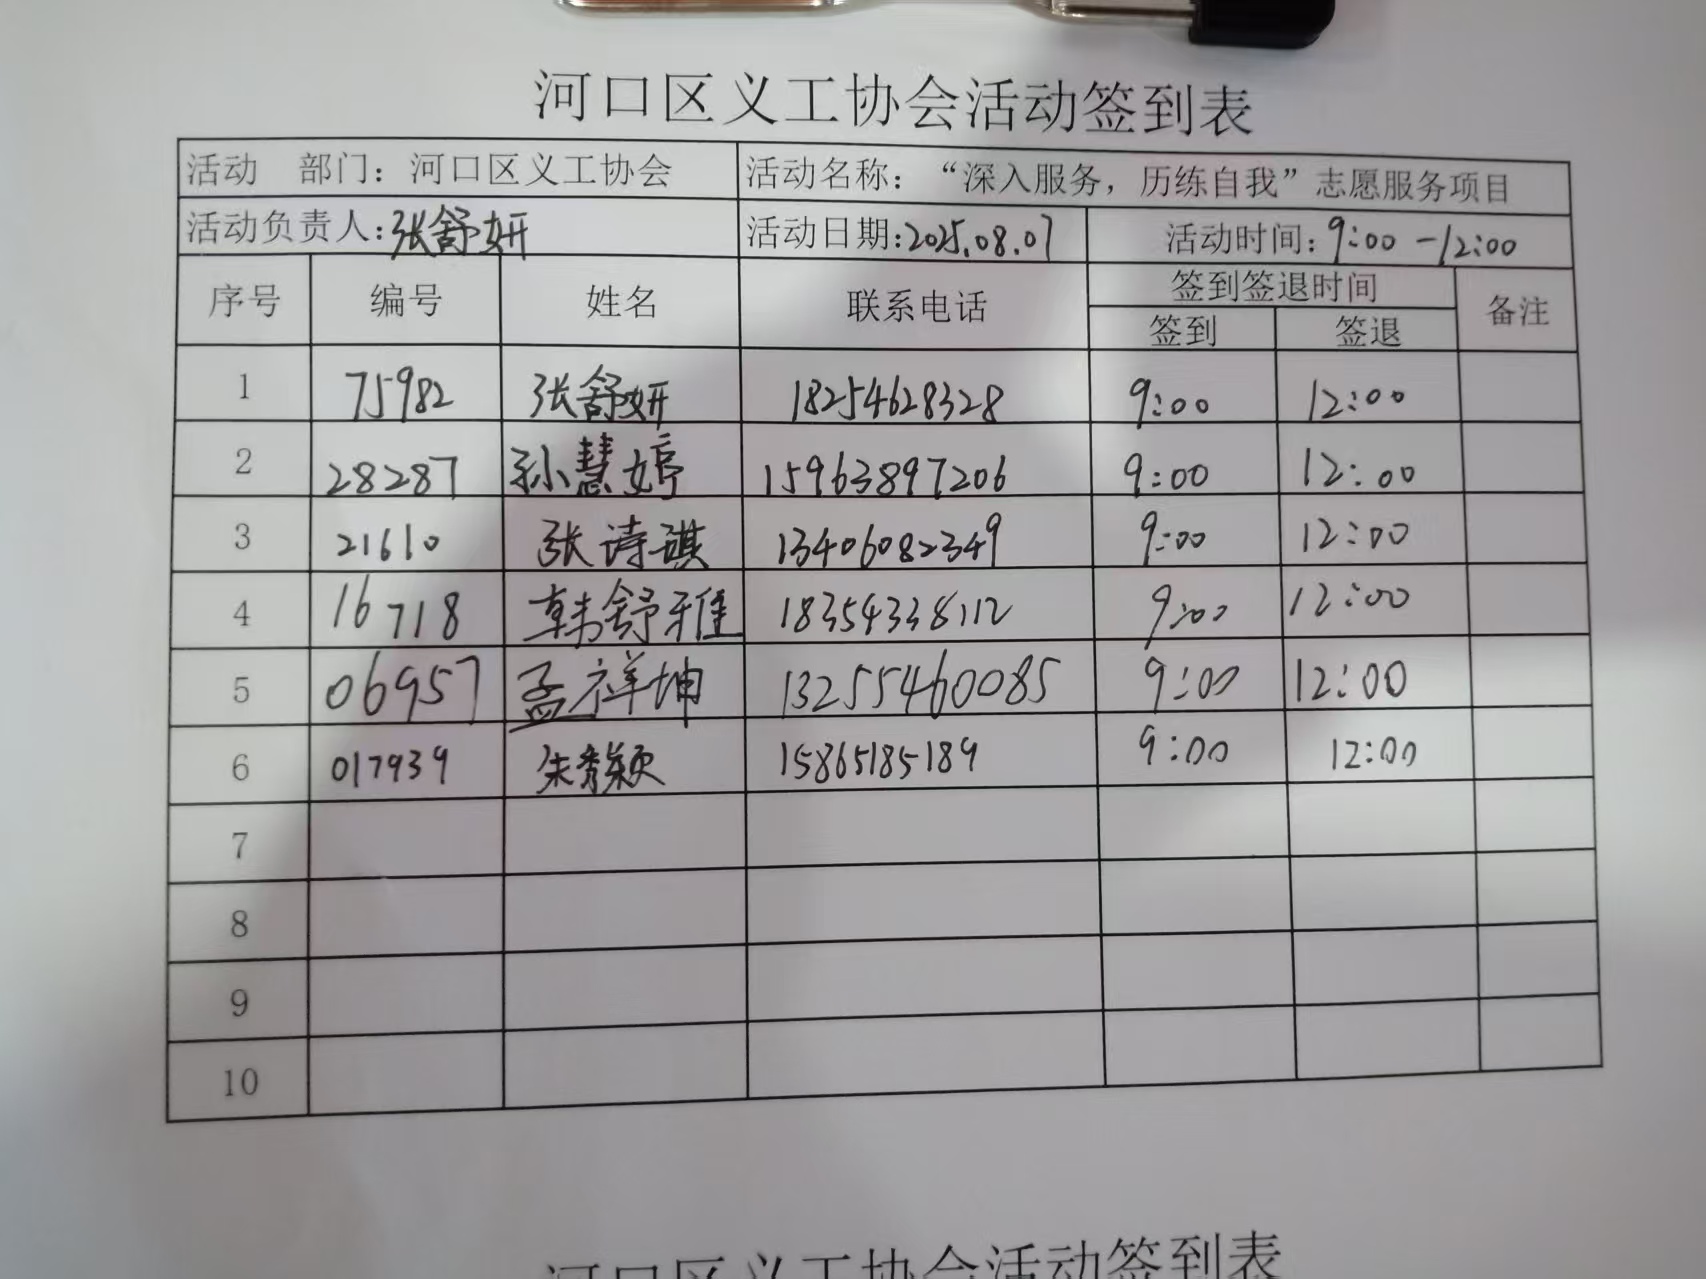 河口区义工协会活动签到表
活动 部门：河口区义工协会 活动名称：“深入服务，历练自我”志愿服务项目
活动负责人：张舒妍 活动日期：2025.08.07 活动时间：9:00-12:00
序号 编号 姓名 联系电话 签到签退时间 备注
签到 签退
1 75982 张舒妍 18254628328 9:00 12:00
2 28287 孙慧婷 15963897206 9:00 12:00
3 21610 张诗琪 13406082349 9:00 12:00
4 16718 韩舒雅 18354338112 9:00 12:00
5 06957 孟祥坤 13255460085 9:00 12:00
6 017939 朱秀颖 15865185189 9:00 12:00
7
8
9
10
河口区义工协会活动签到表